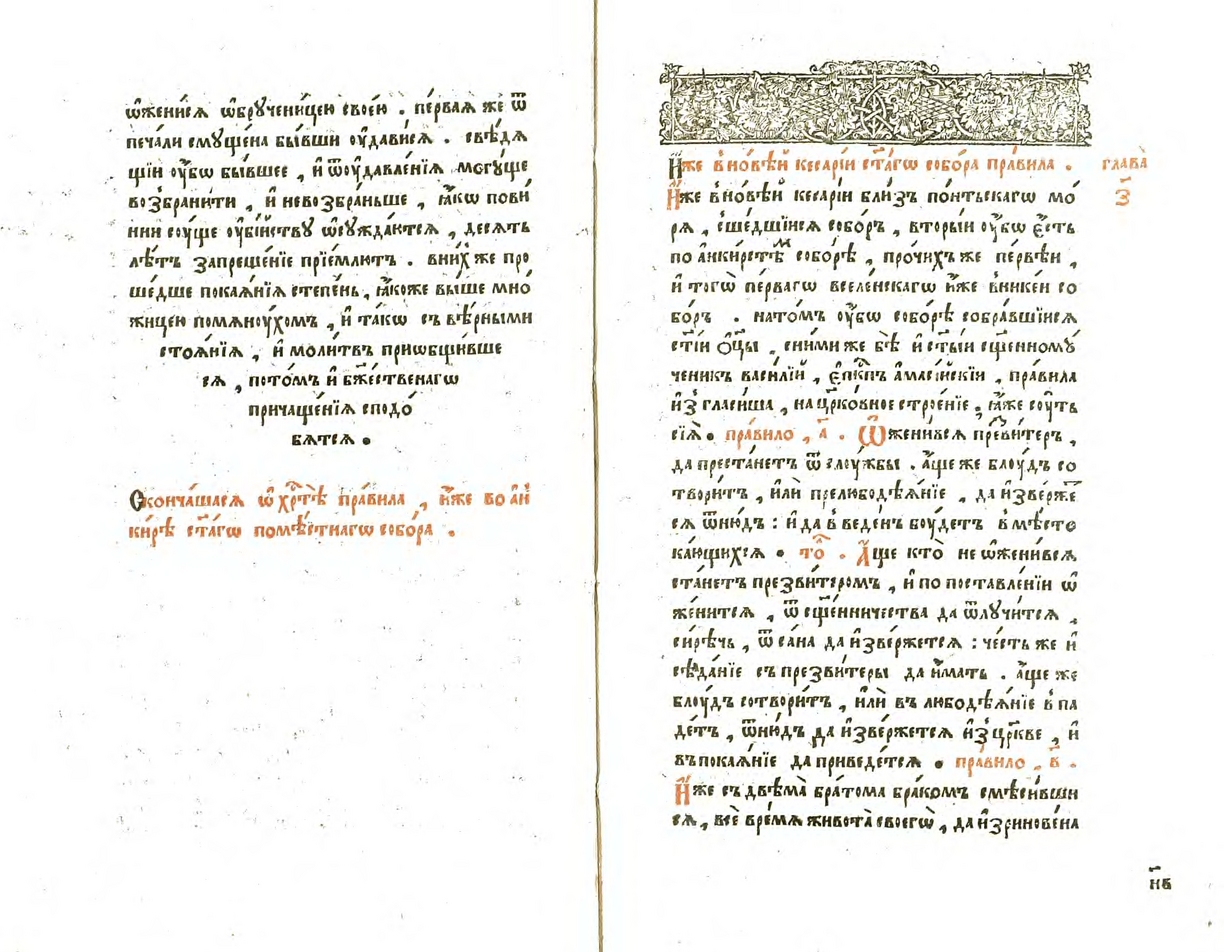 ѡ҆женисѧ ѡ҆брꙋче́ницею свое́ю . пе́рваѧ же ѿ
печа́ли смꙋще́на бы́вши ᲂу҆дави́сѧ . свѣ́дѧ
щїи ᲂу҆́бѡ бы́вшее , и҆ ѿᲂу҆давле́нїѧ могꙋ́ще
возбрани́ти , и҆ невозбра́ньше , ꙗ҆́кѡ пови́
нни сꙋ́ще ᲂу҆бі́йствꙋ ѡ҆сꙋжда́ютсѧ , де́сѧть
лѣ́тъ запреще́нїе прїе́млютъ . вни́х же про
ше́дше покаѧ́нїѧ степе́нь , ꙗ҆́коже вы́ше мно
жи́цею помѧнꙋ́хомъ , и҆ та́кѡ съ вѣ́рными
стоѧ́нїѧ , и҆ моли́твъ приѡбщи́вше
сѧ , пото́мъ и҆ бж҃е́ственагѡ
причаще́нїѧ сподо́
бѧтсѧ .
Сконча́шасѧ ѡ҆ хрⷭ҇тѣ̀ пра́вила , и҆́же во а҆н
ки́рѣ ст҃а́гѡ помѣ́стнагѡ собо́ра .
И҆́же в но́вѣй кесарі́и ст҃а́гѡ собо́ра пра́вила . глава̀
з҃
И҆́же в но́вѣй кесарі́и бли́зъ по́нтьскагѡ мо́
рѧ , сше́дшїисѧ собо́ръ , вторы́и ᲂу҆́бѡ є҆́сть
по а҆нки́рстѣⷨ собо́рѣ , про́чихъ же пе́рвѣи ,
и҆ тогѡ̀ пе́рвагѡ вселе́нскагѡ и҆́же в ники́и со
бо́ръ . на то́мъ ᲂу҆́бѡ собо́рѣ собра́вшїисѧ
ст҃і́и ѻ҆ц҃ы̀ , сни́ми же бѣ̀ и҆ ст҃ы́и сщ҃енномꙋ́
ченикъ васи́лїй , є҆пⷭ҇кпъ а҆масі́йскїи , пра́вила
и҆згласи́ша , на цр҃ко́вное строе́нїе , ꙗ҆́же сꙋ́ть
сїѧ̀ . пра́вило , а҃ . Ѡ҆жени́выйсѧ презви́теръ ,
да преста́нетъ ѿ слꙋ́жбы . а҆́ще же блꙋ́дъ со
твори́тъ , и҆лѝ прелюбодѣѧ́нїе , да и҆зве́рже
сѧ ѿню́дъ : и҆ да в веде́нъ бꙋ́детъ в мѣ́сто
ка́ющихсѧ . то́ⷧ . А҆́ще кто̀ не ѡ҆жени́всѧ
ста́нетъ презви́теромъ , и҆ по поставле́нїи ѡ҆
же́нитсѧ , ѿ сщ҃е́нничества да ѿлꙋчи́тсѧ ,
си́рѣчь , ѿ са́на да и҆зве́ржетсѧ : че́сть же и҆
сѣда́нїе съ презви́теры да и҆́мать . а҆́ще же
блꙋ́дъ сотвори́тъ , и҆лѝ въ любодѣѧ́нїе впа
де́тъ , ѿню́дъ да и҆зве́ржетсѧ и҆з цр҃кве , и҆
въ покаѧ́нїе да приведе́тсѧ . пра́вило , в҃ .
И҆́же съ двѣма̀ бра́тома бра́комъ смѣси́вши
сѧ , всѐ вре́мѧ живота̀ своегѡ̀ , да и҆зринове́на
н҃в